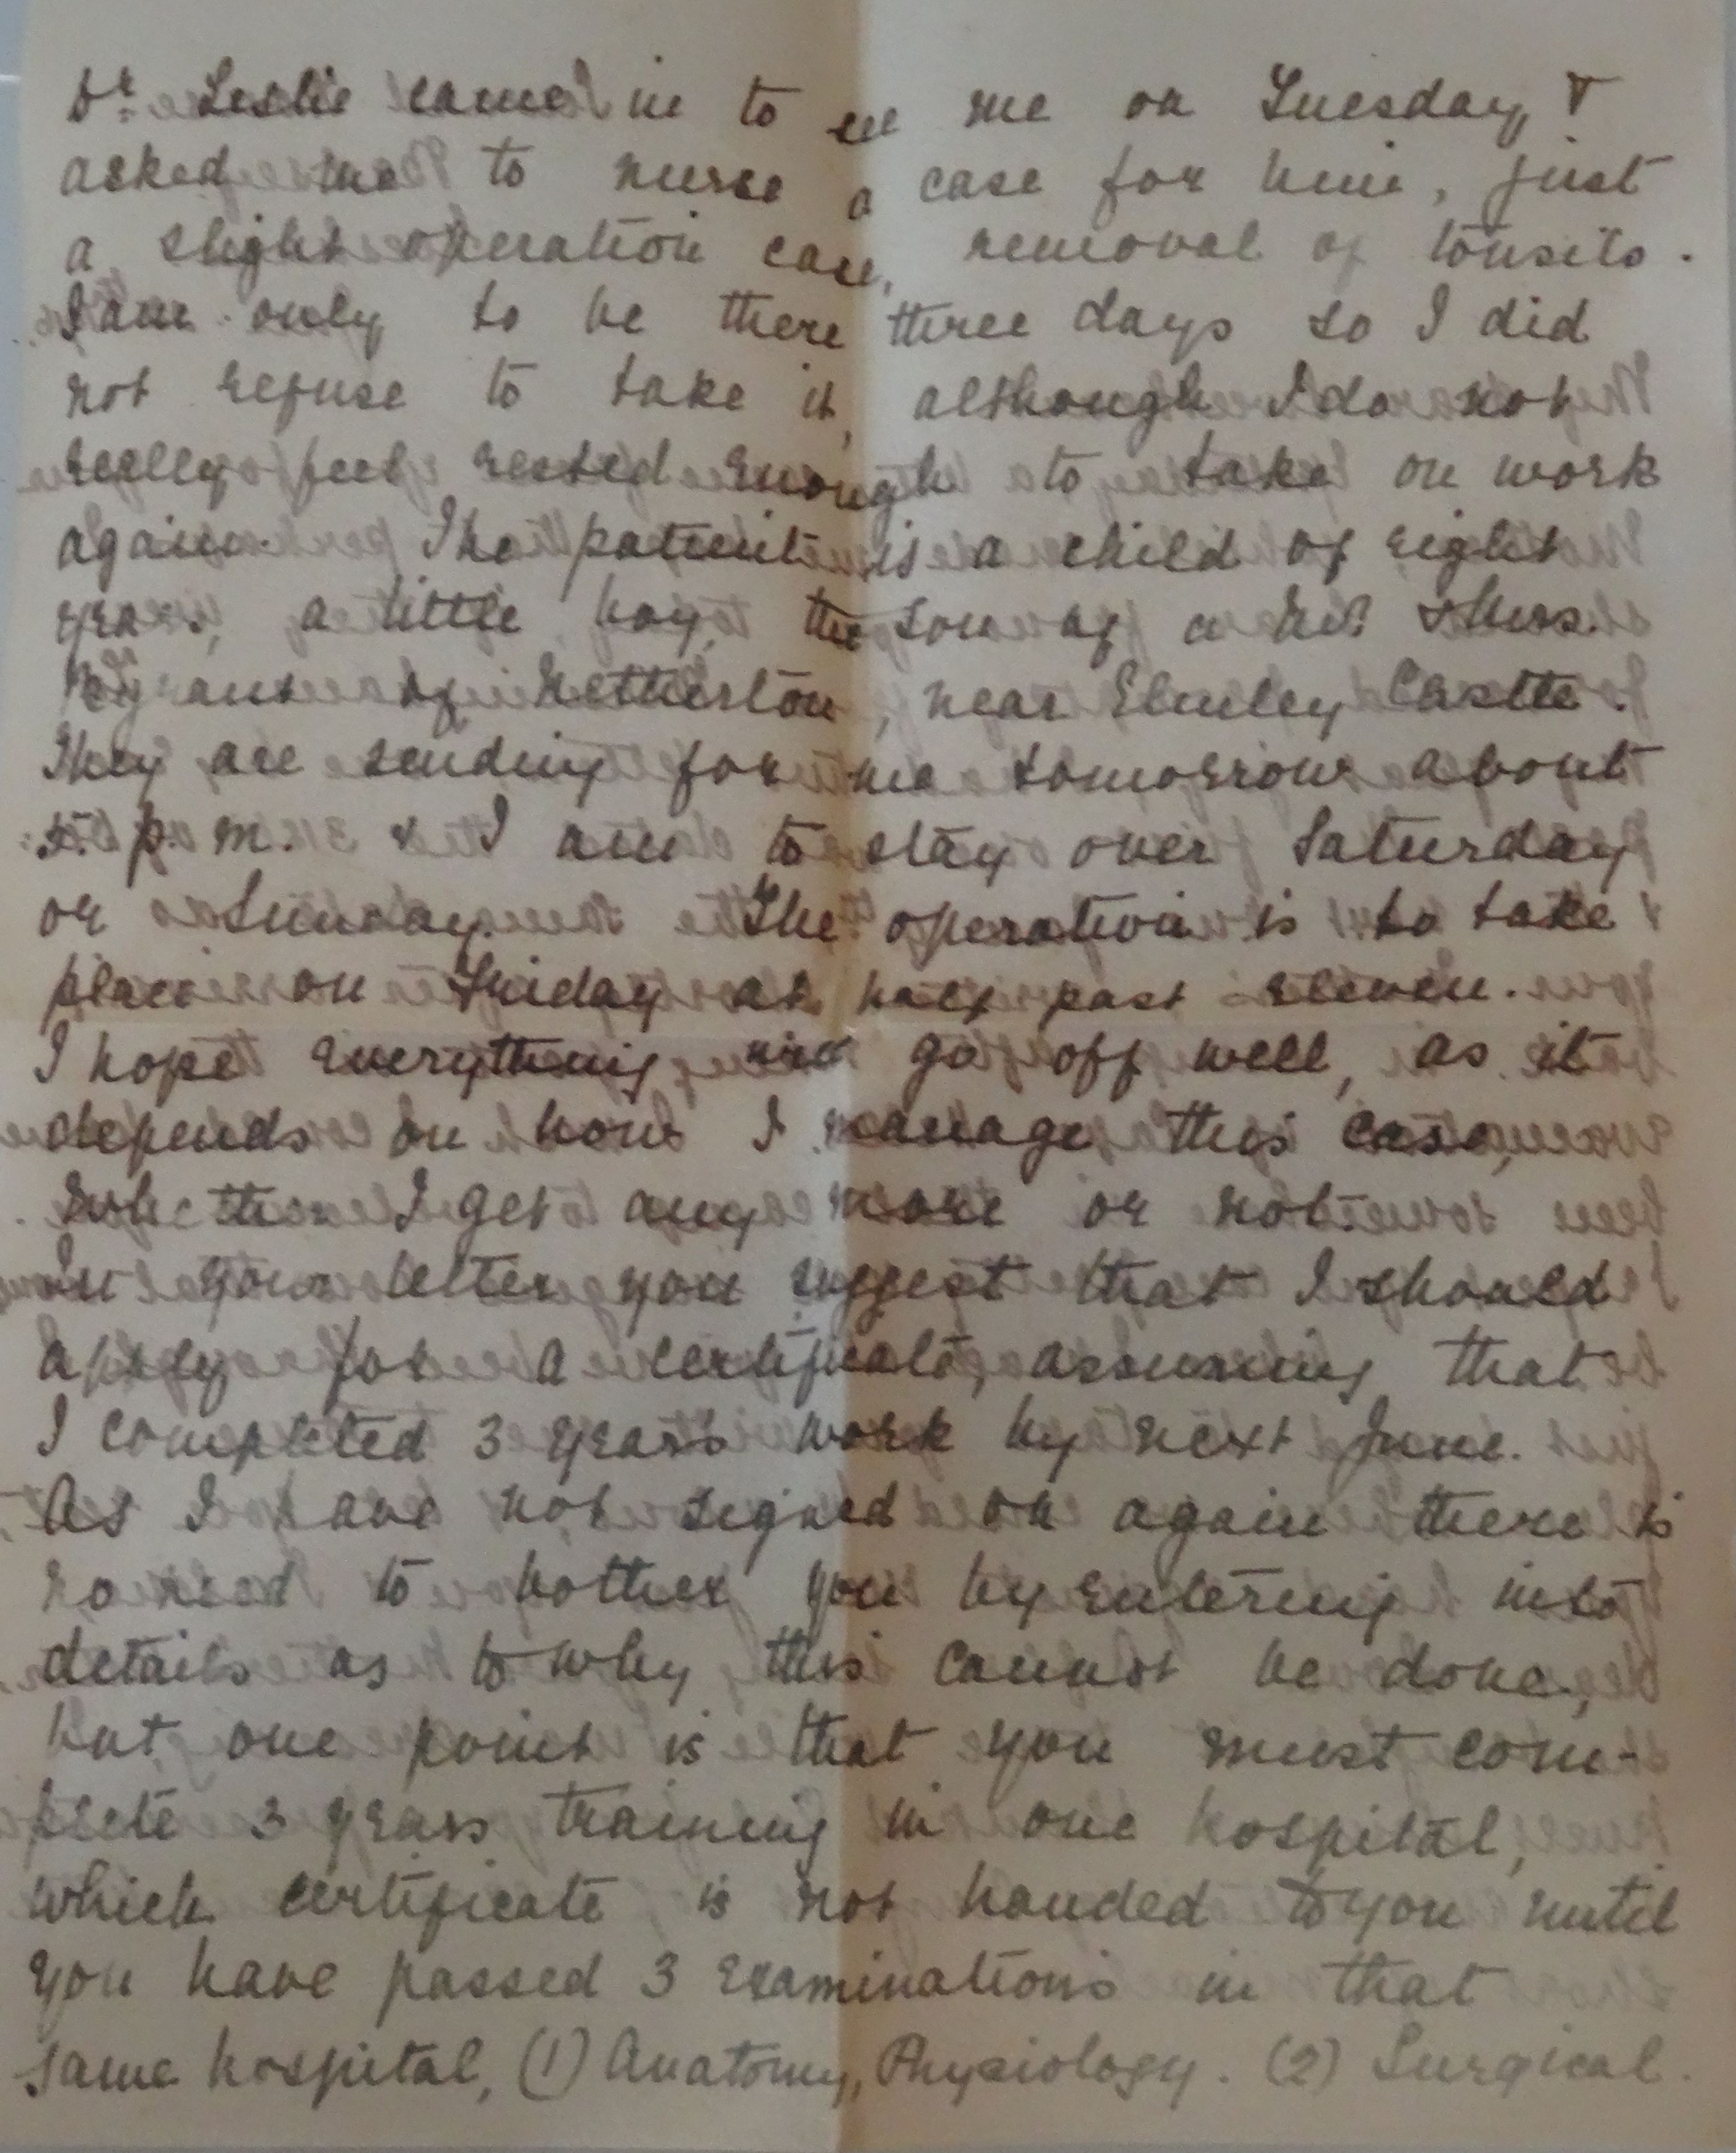 Dr. Leslie came in to see me on Tuesday, &
asked me to nurse a case for him, just
a slight operation case, removal of tonsils.
I am only to be there three days so I did
not refuse to take it, although I do not
really feel rested enough to take on work
again. The patient is a child of eight
years, a little boy, the son of a Mr. & Mrs.
of Netherton, near Elmley Castle.
They are sending for me tomorrow about
5. p. m. & I am to stay over Saturday
or Sunday. The operation is to take
place on Friday at half past eleven.
I hope everything will go off well, as it
depends on how I manage this case,
whether I get any more or not.
In your letter you suggest that I should
apply for a certificate, assuming that
I completed 3 years work by next June.
As I have not signed on again there is
no need to bother you by entering into
details as to why this cannot be done,
but one point is that you must com-
plete 3 years training in one hospital,
which certificate is not handed to you until
you have passed 3 examinations in that
same hospital, (1) Anatomy, Physiology. (2) Surgical.